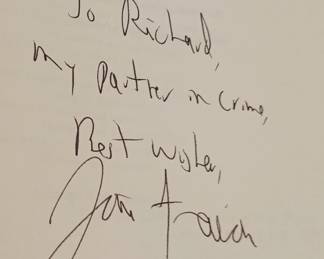 To Richard,
my partner in crime,
Best wishes,